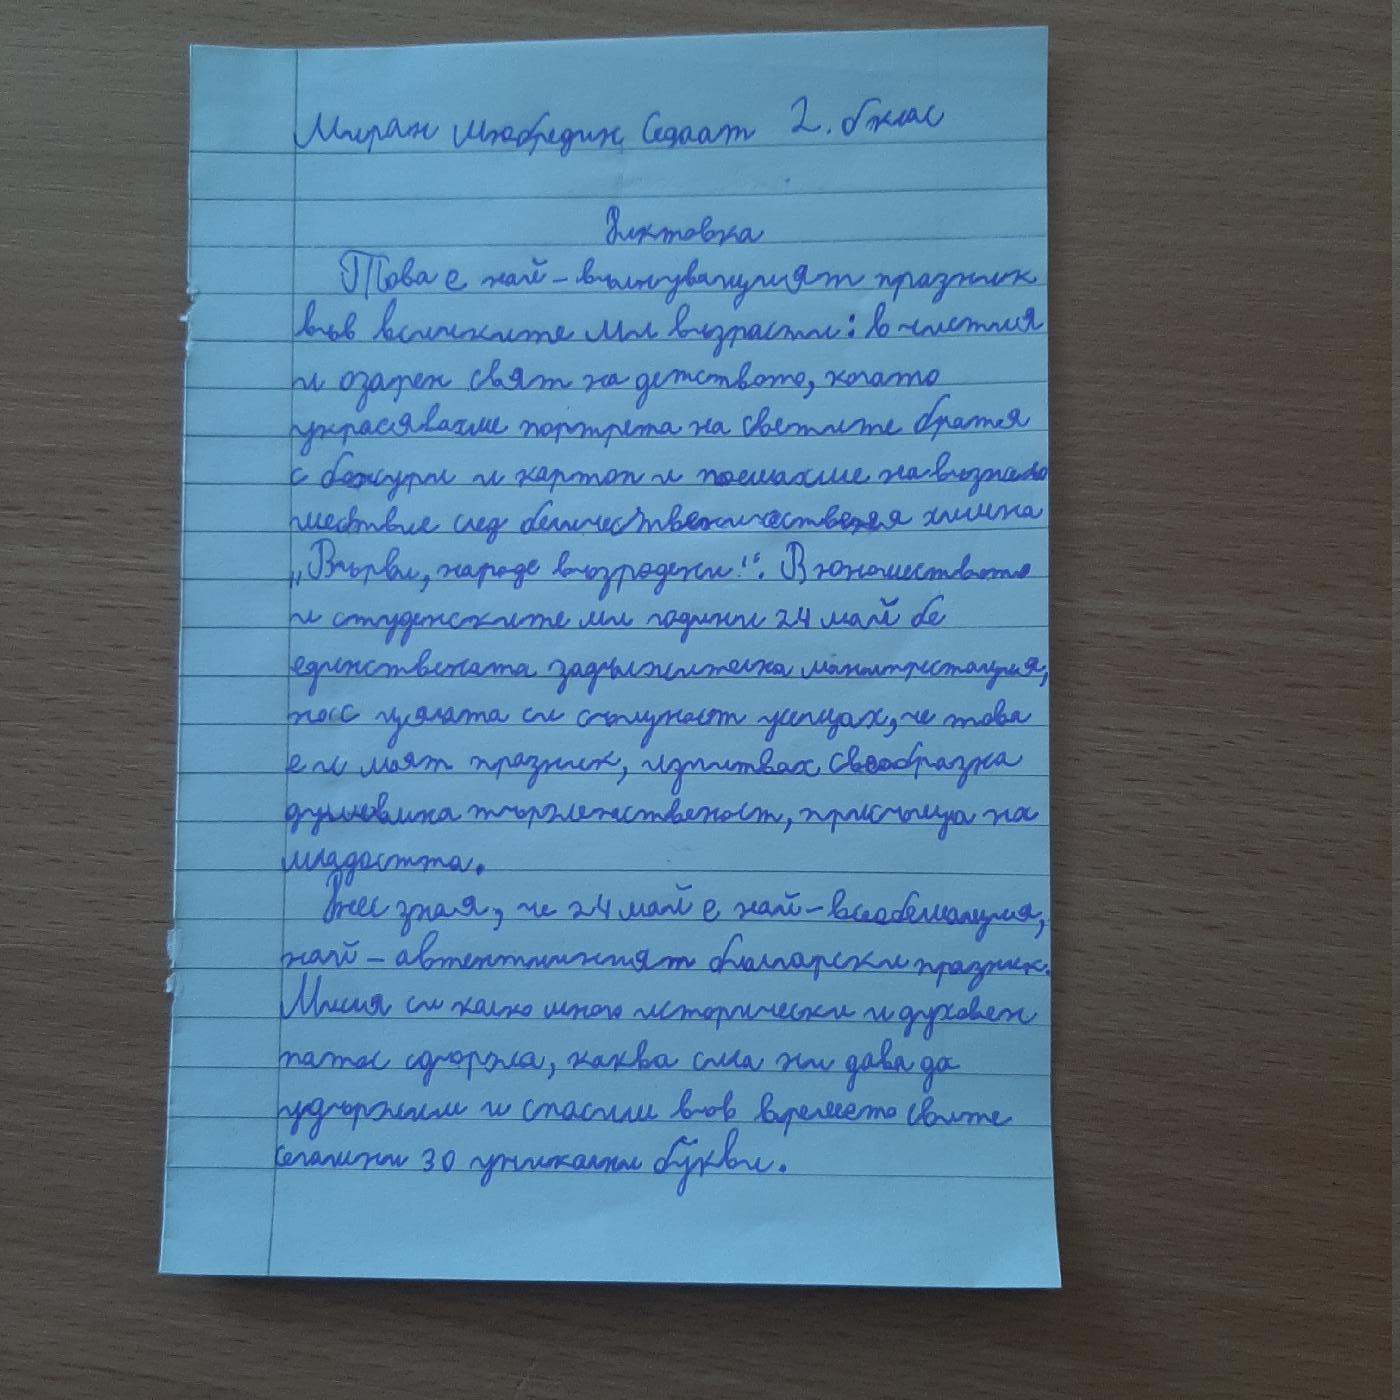 Миран Мюбредин Седаат 2. б клас
Диктовка
Това е най-вълнуващият празник
във всичките ми възрасти: в чистия
и озарен свят на детството, когато
украсявахме портрета на светите братя
с божури и картон и поемахме на
шествие след величествения химна
„Върви, народе възродени!“. В юношеството
и студенските ми години 24 май бе
единствената задължителна манифестация,
но с цялата си същност усещах, че това
е и моят празник, изпитвах своеобразна
душевна тържественост, присъща на
младостта.
Вече зная, че 24 май е най-всеобемащия,
най-автентичният български празник.
Мисля си колко много исторически и духовен
патос съдържа, каква сила ни дава да
удържим и спасим във времето своите
сегашни 30 уникални букви.